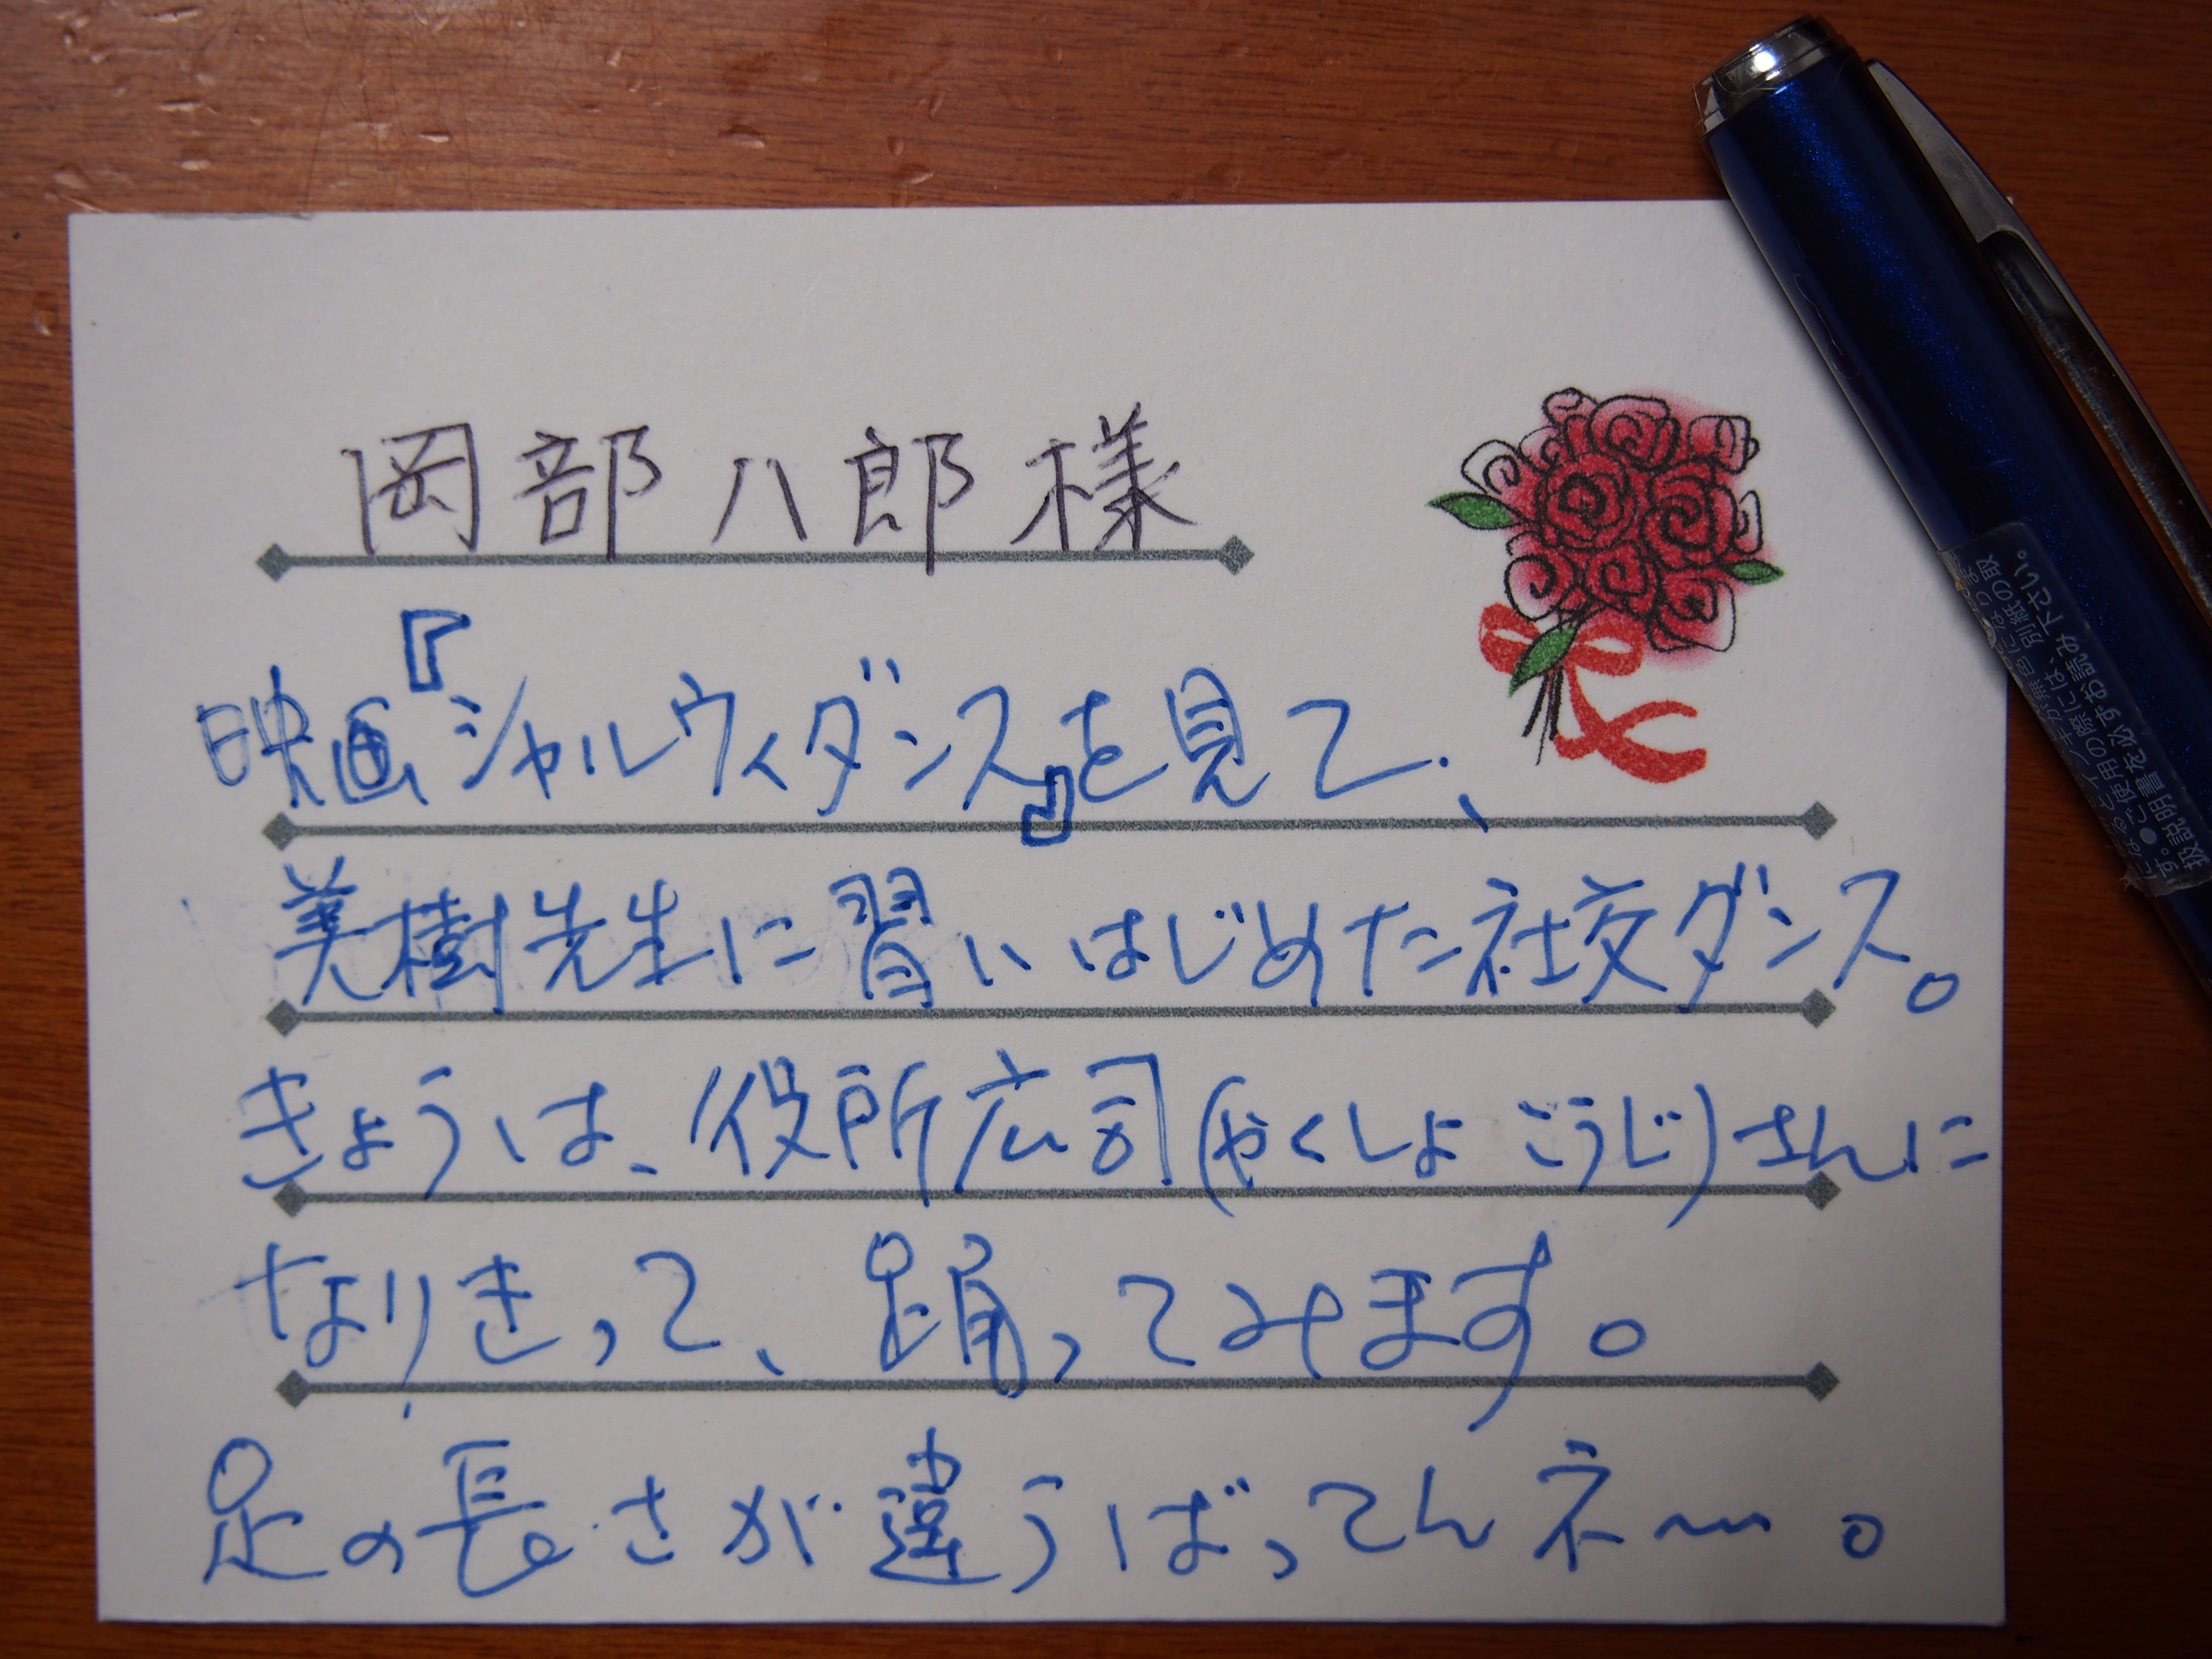 岡部八郎様
映画『シャルウィダンス』を見て、
美樹先生に習いはじめた社交ダンス。
きょうは、役所広司(やくしょ こうじ)さんに
なりきって、踊ってみます。
足の長さが違うばってんネ〜。
別紙の取
下さい。
の際には、
お読み
ご使用
説明書を必ず
す。
扱